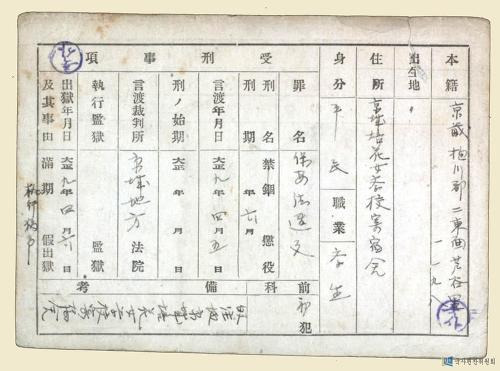 本籍 京畿 抱川郡 二東面 谷里
出生地
住所 京城 花女高校寄宿舍
身分 平民 職業 学生
受刑事項
罪名 保安法違反
刑名 禁錮 懲役
刑期 六月
言渡年月日 大正九年四月五日
刑ノ始期 大正 年 月 日
言渡裁判所 京城地方法院
執行監獄 監獄
出獄年月日 大正九年四月六日
及其事由 満期 假出獄
前科 初犯
備考
국사편찬위원회